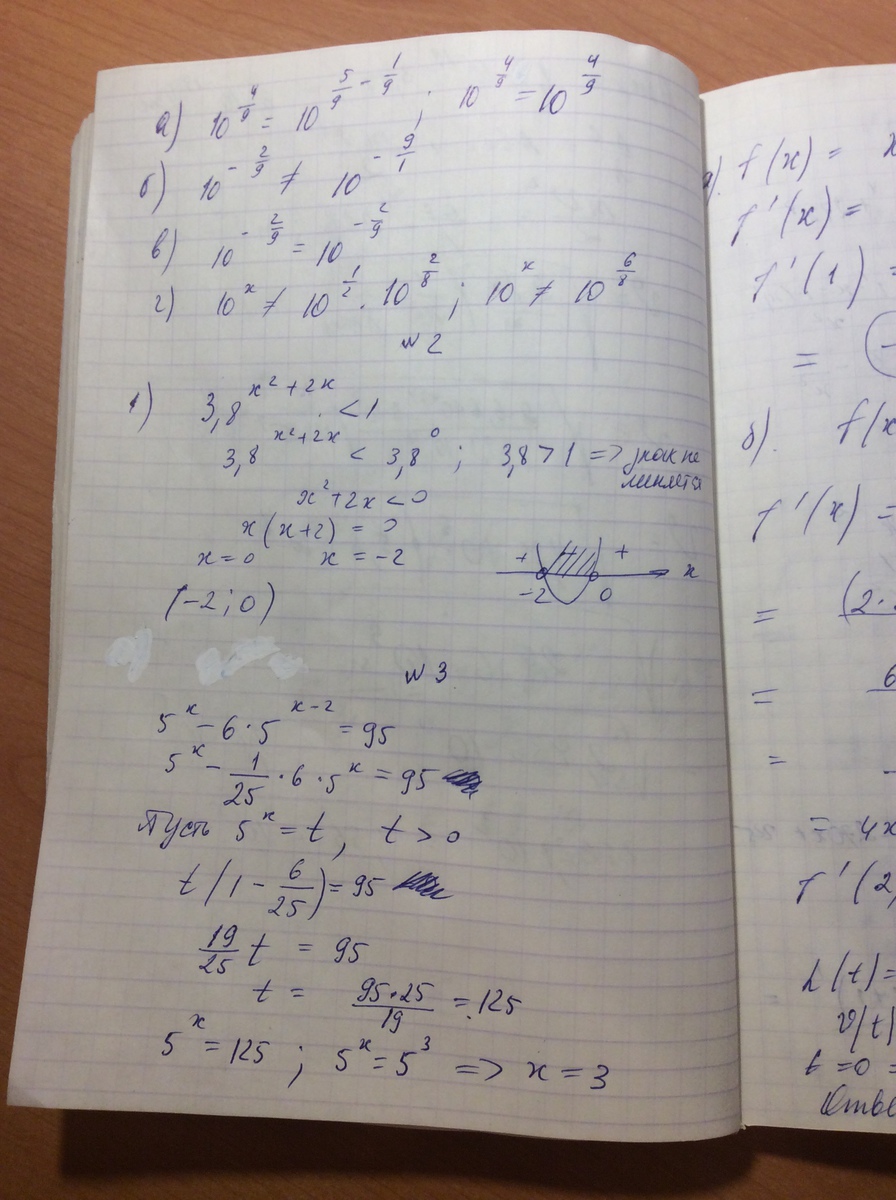 а) 10^{4/9} = 10^{5/9 - 1/9} ; 10^{4/9} = 10^{4/9}
б) 10^{-2/9} ≠ 10^{-9/1}
в) 10^{-2/9} = 10^{-2/9}
г) 10^x ≠ 10^{1/2} · 10^{2/8} ; 10^x ≠ 10^{6/8}
№2
1) 3,8^{x²+2x} < 1
3,8^{x²+2x} < 3,8^0 ; 3,8 > 1 => знак не
меняется
x² + 2x < 0
x(x+2) = 0
x = 0 x = -2
+ + x
-2 0
(-2; 0)
№3
5^x - 6 · 5^{x-2} = 95
5^x - 1/25 · 6 · 5^x = 95
Пусть 5^x = t, t > 0
t(1 - 6/25) = 95
19/25 t = 95
t = 95·25/19 = 125
5^x = 125 ; 5^x = 5^3 => x = 3
f(x) =
f'(x) =
f'(1) =
= (-
б). f(x
f'(x) =
= (2 ·
= 6
=
= 4x
f'(2,
h(t) =
v(t)
t = 0 =
Отве